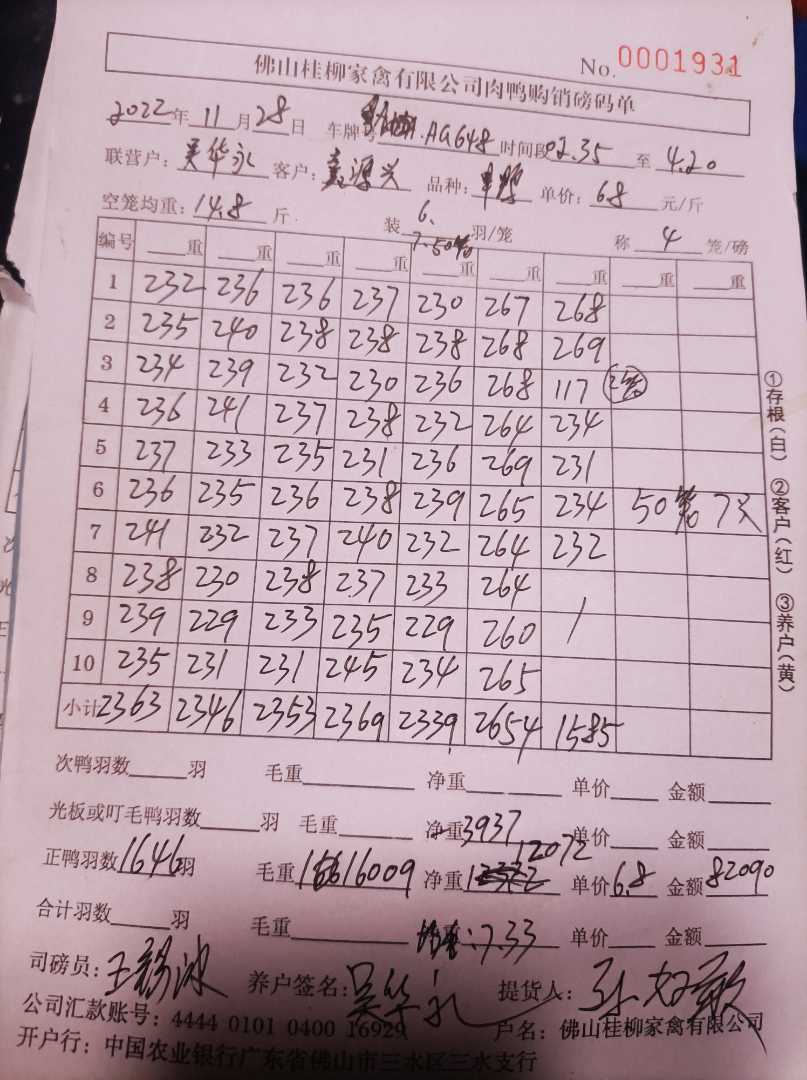 No. 0001931
佛山桂柳家禽有限公司肉鸭购销磅码单
2022年 11月28日 车牌号 .AG648 时间段02.35 至 4.20
联营户: 吴华永 客户: 鑫源兴 品种: 单价: 68 元/斤
空笼均重: 14.8 斤 装 6、7.50笼 羽/笼 称 4 笼/磅
编号 重 重 重 重 重 重 重 重 重
1 232 236 236 237 230 267 268
2 235 240 238 238 238 268 269
3 234 239 232 230 236 268 117 2笼
4 236 241 237 238 232 264 234
5 237 233 235 231 236 269 231
6 236 235 236 238 239 265 234 50笼 7只
7 241 232 237 240 232 264 232
8 238 230 238 237 233 264
9 239 229 233 235 229 260 /
10 235 231 231 245 234 265
小计 2363 2346 2353 2369 2339 2654 1585
次鸭羽数 羽 毛重 净重 单价 金额
光板或叮毛鸭羽数 羽 毛重 净重 3937 单价 金额
正鸭羽数 1646 羽 毛重 16009 净重 12072 单价 6.8 金额 82090
合计羽数 羽 毛重 : 7.33 单价 金额
司磅员: 王 冰 养户签名: 吴华永 提货人:
公司汇款账号: 4444 0101 0400 16929 户名: 佛山桂柳家禽有限公司
开户行: 中国农业银行广东省佛山市三水区三水支行
①存根(白) ②客户(红) ③养户(黄)